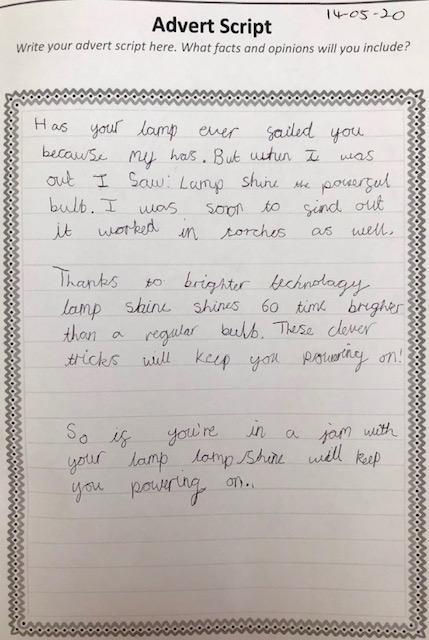 14-05-20
Advert Script
Write your advert script here. What facts and opinions will you include?
Has your lamp ever failed you
because my has. But when I was
out I Saw: Lamp shine the powerful
bulb. I was soon to find out
it worked in torches as well.
Thanks to brighter technology
lamp shine shines 60 time brighter
than a regular bulb. These clever
tricks will keep you powering on!
So if you're in a jam with
your lamp lamp/shine will keep
you powering on..